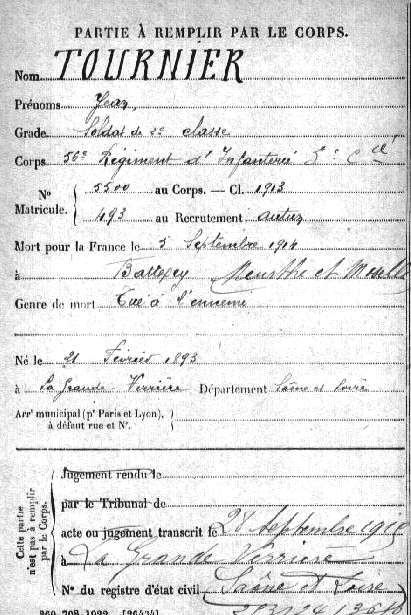 PARTIE À REMPLIR PAR LE CORPS.
Nom TOURNIER
Prénoms Jean
Grade Soldat de 2e classe
Corps 56e Régiment d'Infanterie 5e Cie
No Matricule. 5500 au Corps. — Cl. 1913
493 au Recrutement Autun
Mort pour la France le 5 Septembre 1914
à Meurthe et Moselle
Genre de mort Tué à l'ennemi
Né le 21 Février 1893
à La Grande Verrière Département Saône et Loire
Arrt municipal (pr Paris et Lyon),
à défaut rue et No.
Cette partie n'est pas à remplir par le Corps.
Jugement rendu le
par le Tribunal de
acte ou jugement transcrit le 28 Septembre
à La Grande Verrière
No du registre d'état civil Saône et Loire